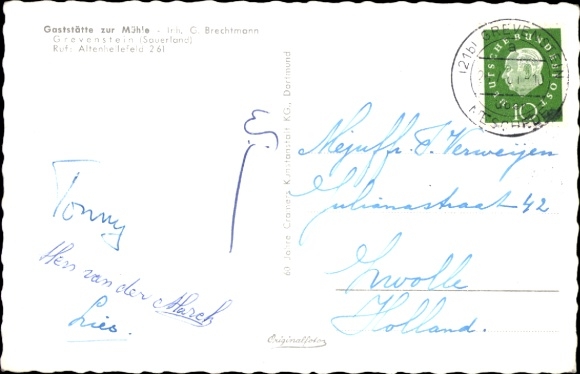 Gaststätte zur Mühle - Inh. C. Brechtmann
Grevenstein (Sauerland)
Ruf: Altenhellefeld 261
60 Jahre Cramers Kunstanstalt KG., Dortmund
Originalfoto
DEUTSCHE BUNDESPOST
10
(21b) GREVEN
MESCHEDE
Tonny
van der Marck
Lies.
Mejuffr. J. Verweijen
Julianastraat 42
Zwolle
Holland.